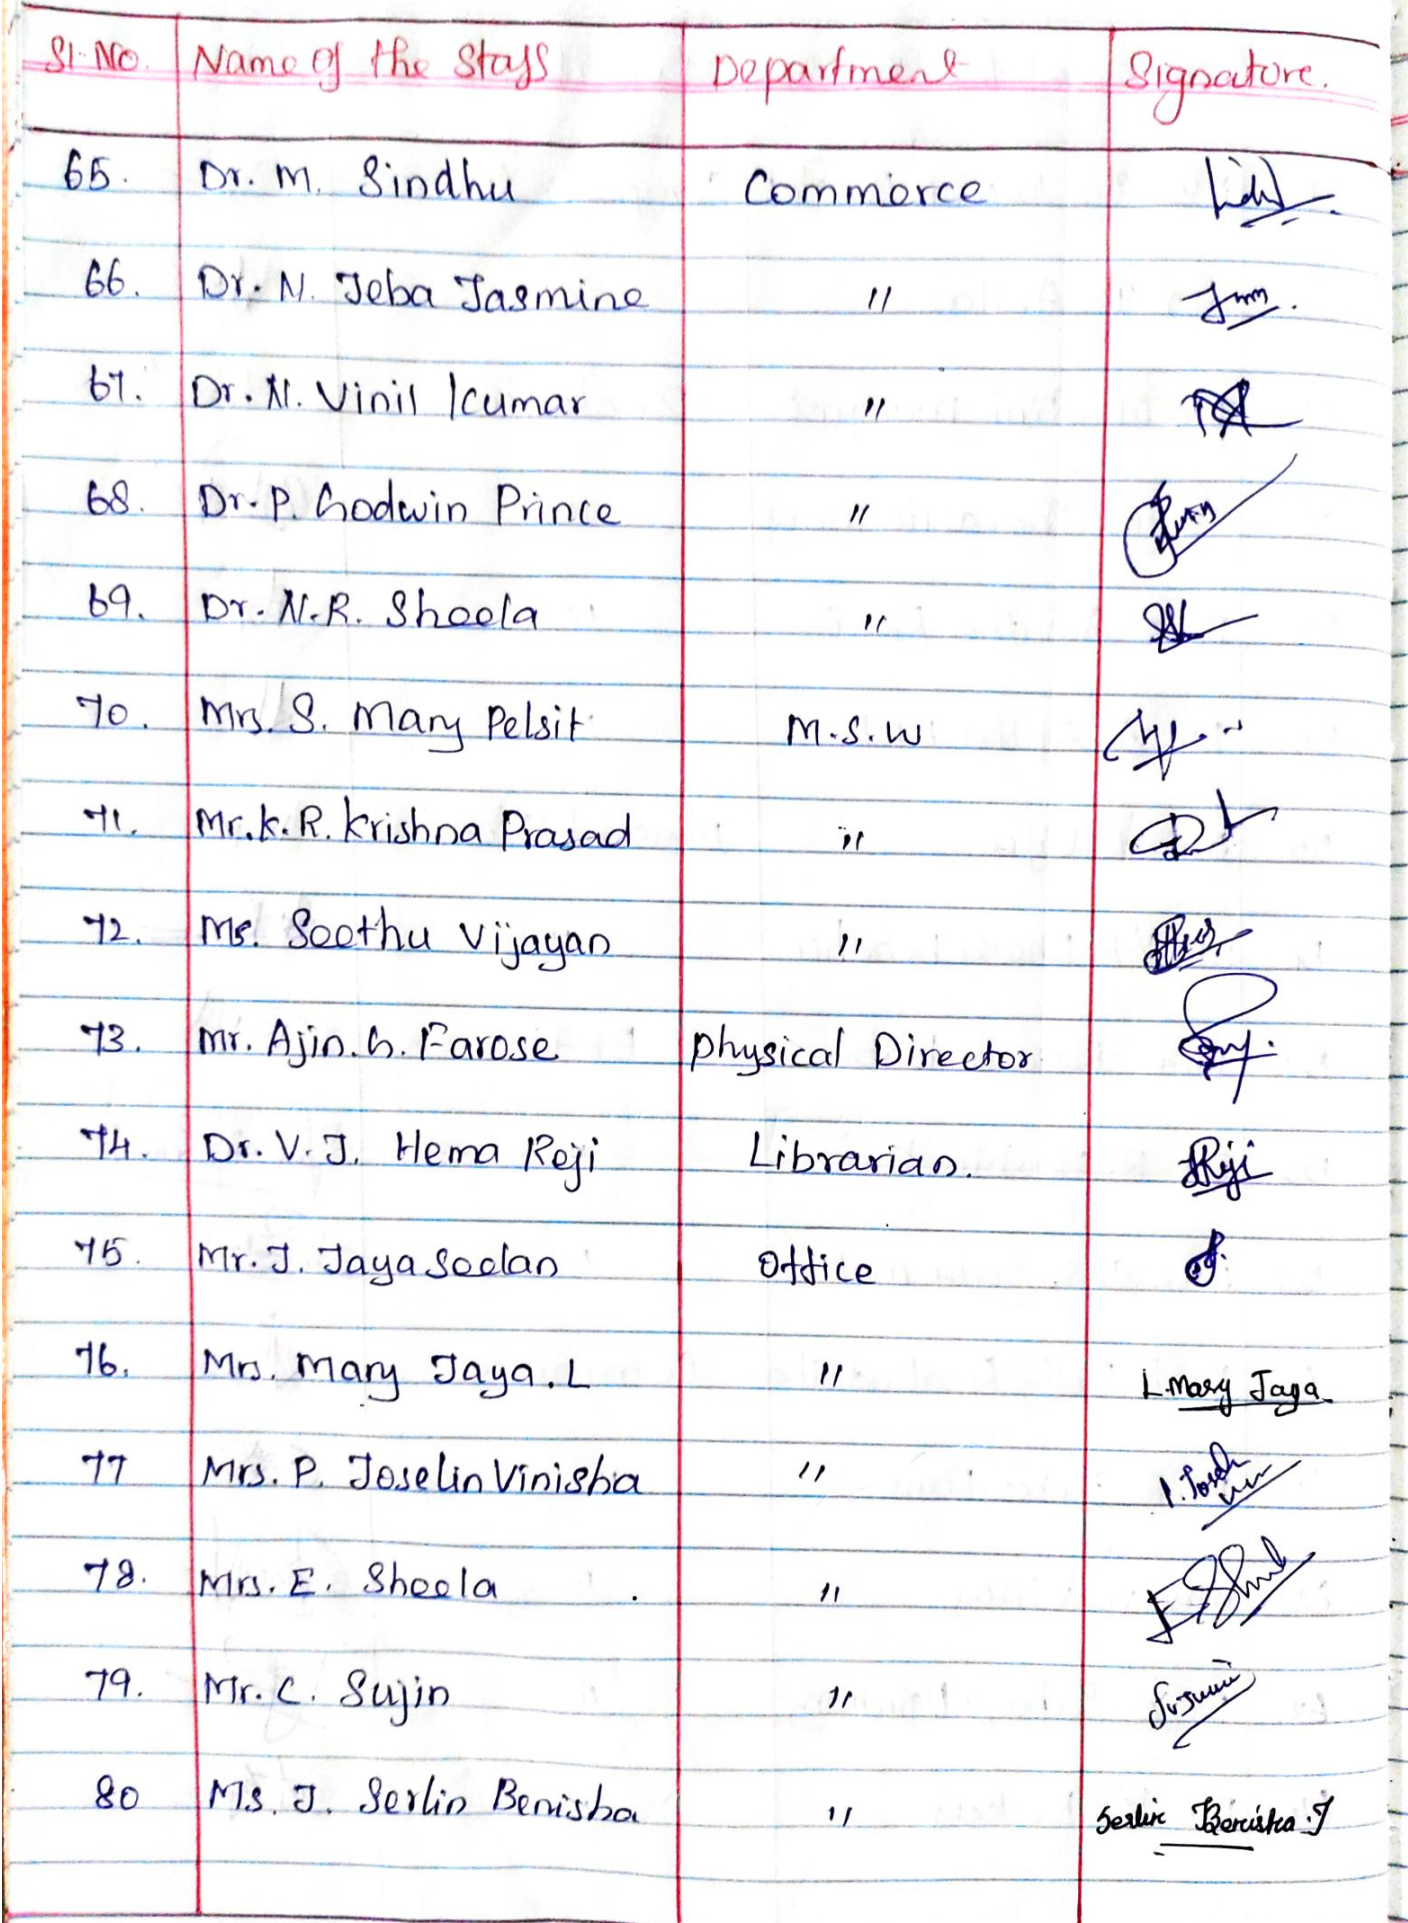 Sl. No. Name of the Staff Department Signature.
65. Dr. M. Sindhu Commerce
66. Dr. N. Jeba Jasmine "
67. Dr. N. Vinil Kumar "
68. Dr. P. Godwin Prince "
69. Dr. N.R. Sheela "
70. Mrs. S. Mary Pelsit M.S.W
71. Mr. K. R. Krishna Prasad "
72. Ms. Seethu Vijayan "
73. Mr. Ajin. G. Farose Physical Director
74. Dr. V. J. Hema Reji Librarian.
75. Mr. J. Jaya Seelan Office
76. Mrs. Mary Jaya. L " L. Mary Jaya
77 Mrs. P. Joselin Vinisha "
78. Mrs. E. Sheela "
79. Mr. C. Sujin "
80 Ms. J. Serlin Benisha " Serlin Benisha. J